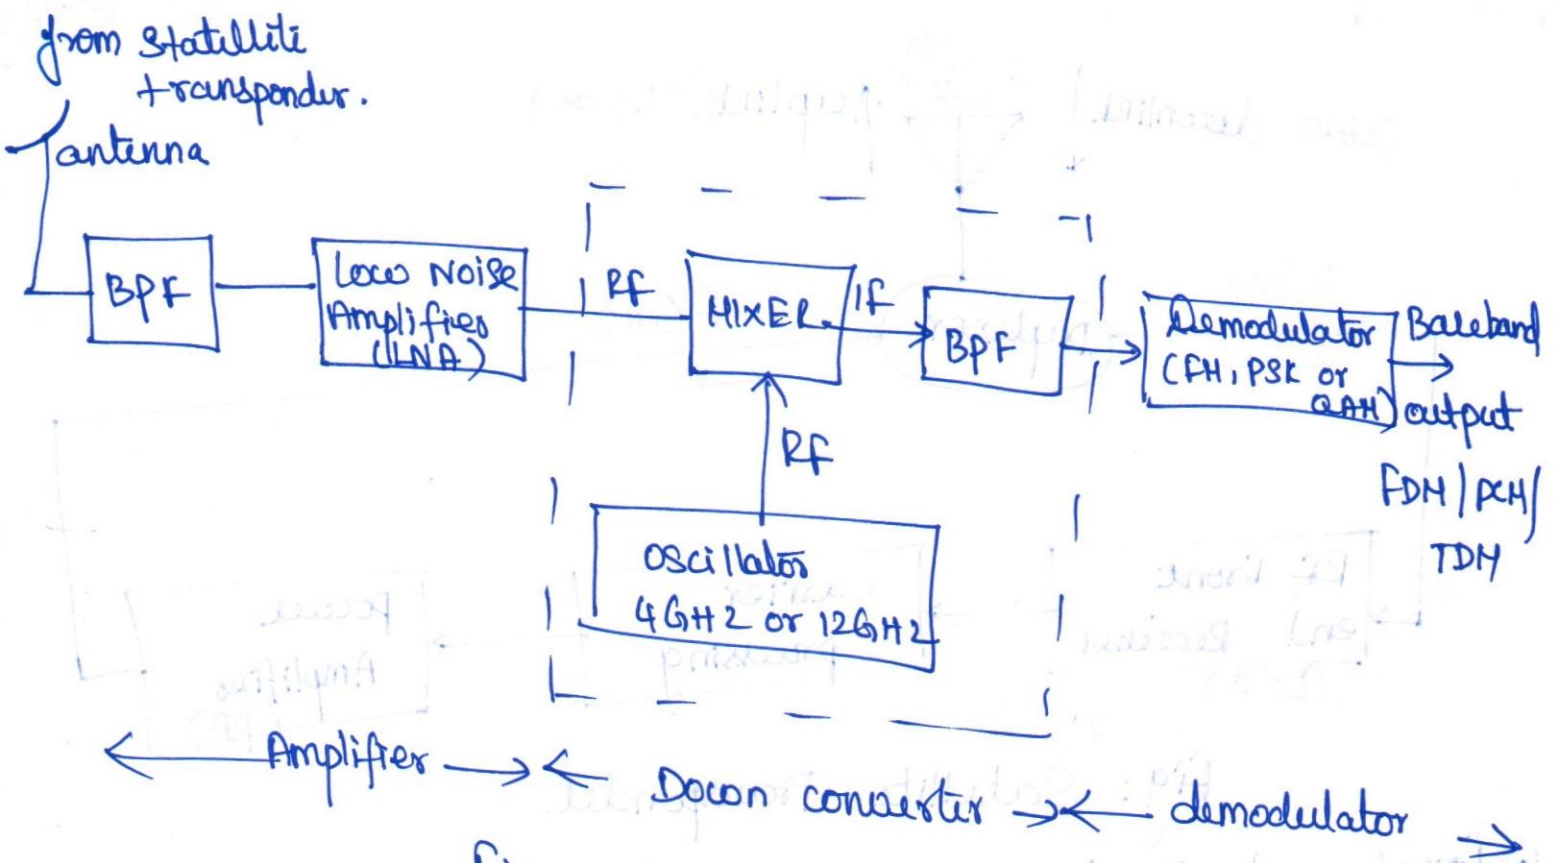 from Statelliti
transponder.
antenna
BPF
Low Noise
Amplifier
(LNA)
RF
MIXER
IF
BPF
Demodulator
(FM, PSK or
QAM)
Baseband
output
FDM/PCM/
TDM
RF
Oscillator
4GHz or 12GHz
Amplifier
Down converter
demodulator